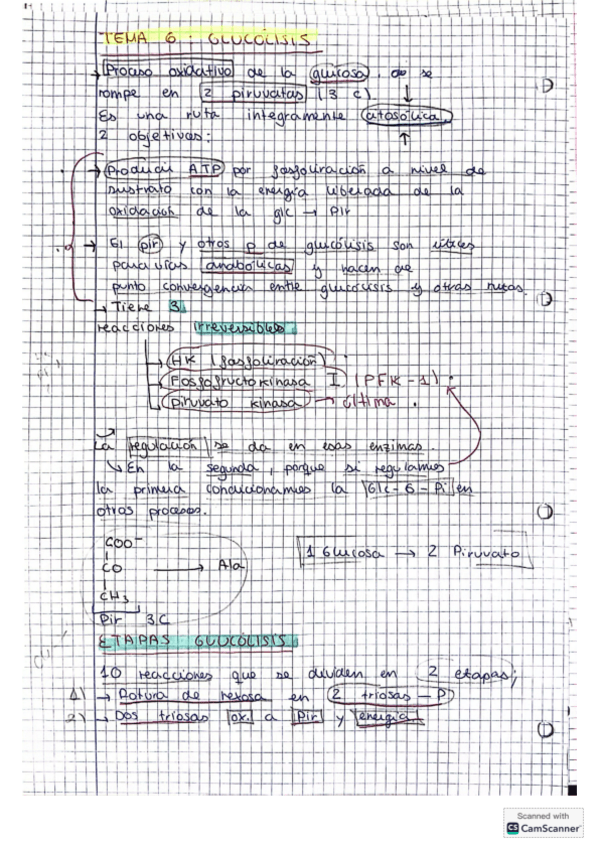 TEMA 6 : GLUCÓLISIS
→ Proceso oxidativo de la glucosa. se
rompe en 2 piruvatos (3 c).
Es una ruta íntegramente citosólica.
2 objetivos:
→ Producir ATP por fosfoliración a nivel de
sustrato con la energía liberada de la
oxidación de la glc → Pir
→ El pir y otros p de glucólisis son útiles
para vías anabólicas y hacen de
punto convergencia entre glucólisis y otras rutas.
→ Tiene 3
reacciones irreversibles
→ HK (fosfoliración)
→ Fosfofructokinasa I (PFK-1).
→ piruvato kinasa → última.
La regulación se da en esas enzimas.
↳ En la segunda, porque si regulamos
la primera condicionamos la Glc-6-Pi en
otros procesos.
COO⁻
CO → Ala
CH₃
Pir 3C
1 Glucosa → 2 Piruvato
ETAPAS GLUCÓLISIS
10 reacciones que se dividen en 2 etapas;
1) → Rotura de hexosa en 2 triosas - P
2) → Dos triosas ox. a Pir y energía
Scanned with
CS CamScanner